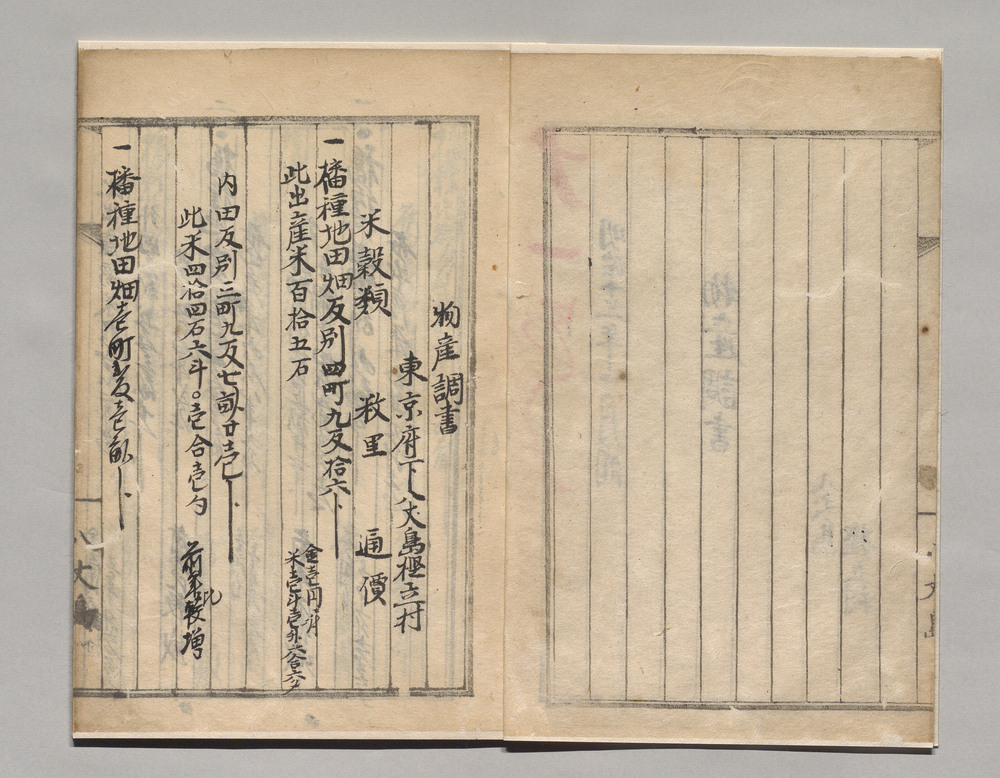 物産調書
東京府下八丈島樫立村
米穀類 数里 通價
一播種地田畑反別四町九反拾六、
此出産米百拾五石
金壱円ニ付
米壱斗壱升六合六夕
内田反別三町九反七畝廿壱
此米四拾四石六斗〇壱合壱勺
前年比較増
一播種地田畑壱町壱反壱畝
八丈島